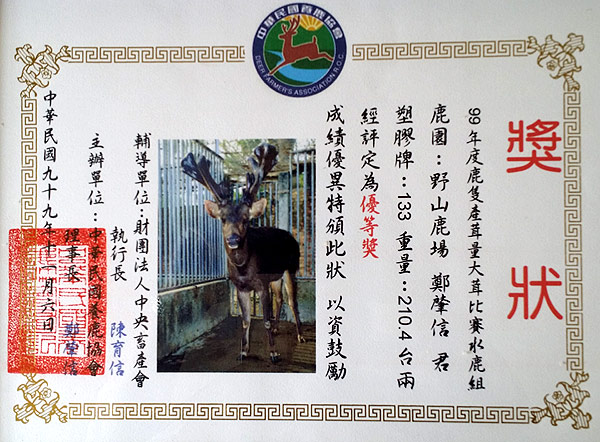 中華民國養鹿協會
DEER FARMER'S ASSOCIATION R.O.C
獎狀
99年度鹿隻產茸量大茸比賽水鹿組
鹿園：野山鹿場 鄭肇信 君
塑膠牌：133 重量：210.4台兩
經評定為優等獎
成績優異特頒此狀 以資鼓勵
輔導單位：財團法人中央畜產會
執行長 陳育信
主辦單位：中華民國養鹿協會
理事長 鄭肇信
中華民國九十九年十一月六日